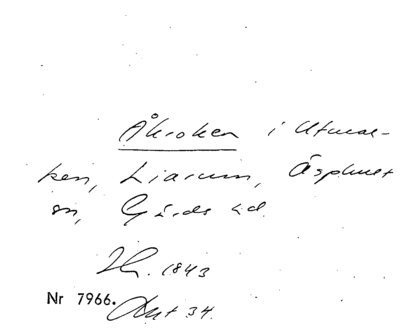 Åkroken i Utmar-
ken, Liarum, Äsphult
sn, Gärds hd.
Lh. 1843
Nr 7966. Akt 34.